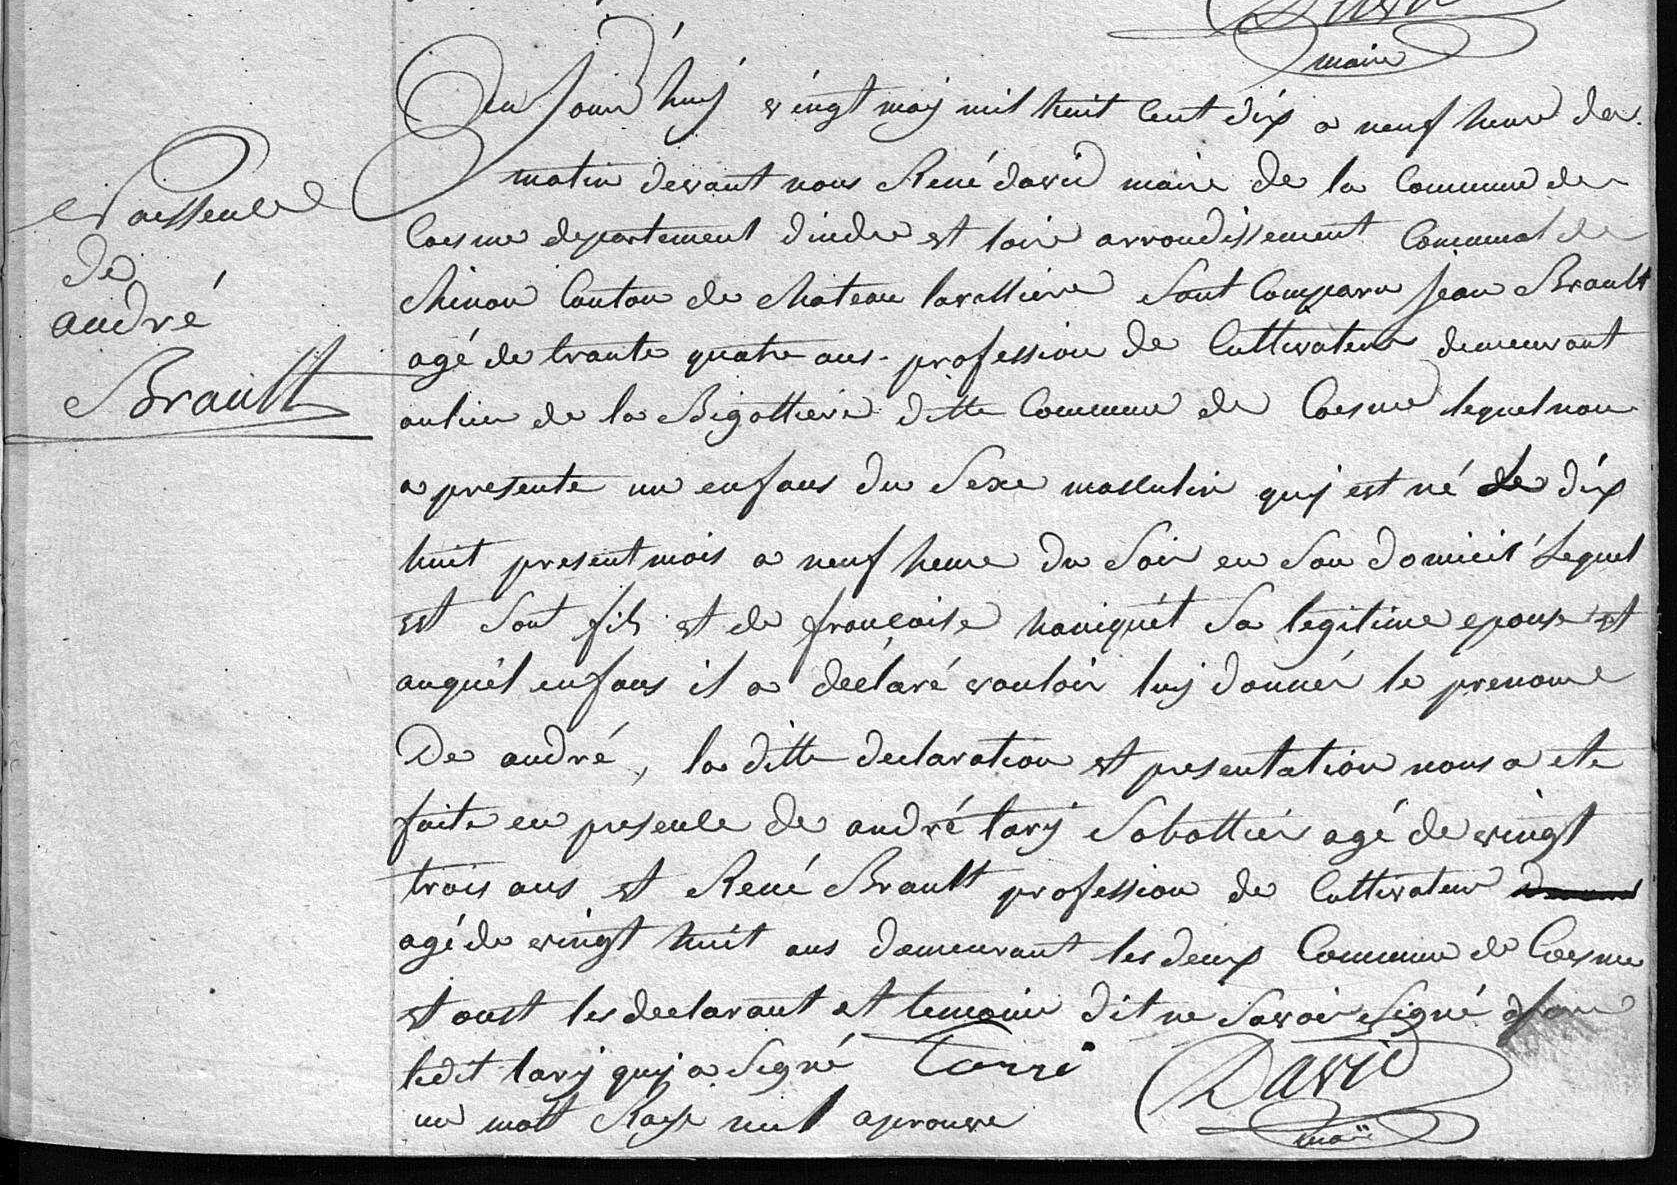 maire
Naissence
de
andré
Brault
au Jourd'huy vingt may mil huit Cent dix a neuf heure de
matin devant nous René david maire de la Commune de
Coesme departement dindre et loire arrondissement Communal de
chinon Canton de chateau lavalliere Sont Comparu Jean Brault
agé de trante quatre ans profession de Cultivateur demeurant
aulieu de la Bigottiere ditte Commune de Coesme lequel nou
a presente un enfans du Sexe masculin quy est né le dix
huit present mois a neuf heure du Soir en Son domicil Lequel
est Sont fils et de francoise haniquét Sa legitime epouse et
auquél enfans il a déclaré vouloir luy donnér le prenome
De andré, la ditte declaration et presentation nous a ete
faite en presence de andré tary Sabottier agé de vingt
trois ans et René Brault profession de Cultivateur
agé de vingt huit ans demeurant les deux Commune de Coesme
et onst les declarant et temoin dit ne Savoir Signé
ledit tary quy a Signé Tarri David
un mott Rayé nul aprouve maire